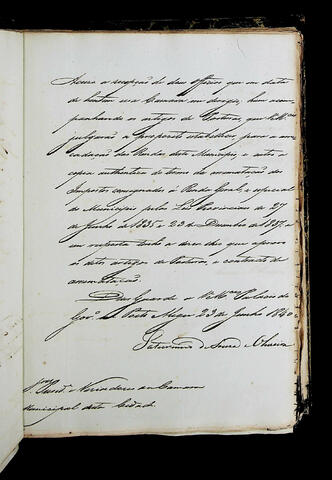 Accuso a recepção de dous officios que em data
de hontem essa Camara me dirigio, hum acom-
panhando os artigos de Posturas, que V.Mces
julgarão a proposito estabelecer para a arre-
cadação das Rendas deste Municipio, e outro a
copia authentica do termo da arrematação dos
impostos consignados à Renda Geral, e especial
do Municipio pelas Leis Provinciaes de 27
de Junho de 1835 e 23 de Dezembro de 1837. e
em resposta tenho a dizer que approvo
os ditos artigos de Posturas, e contracto de
arrematação.
Deos Guarde a V.Mces Palacio do
Govo. em Porto Alegre 23 de Junho 1840
Saturnino de Souza e Oliveira
Snrs. Presidte. e Vereadores da Camara
Municipal desta Cidade